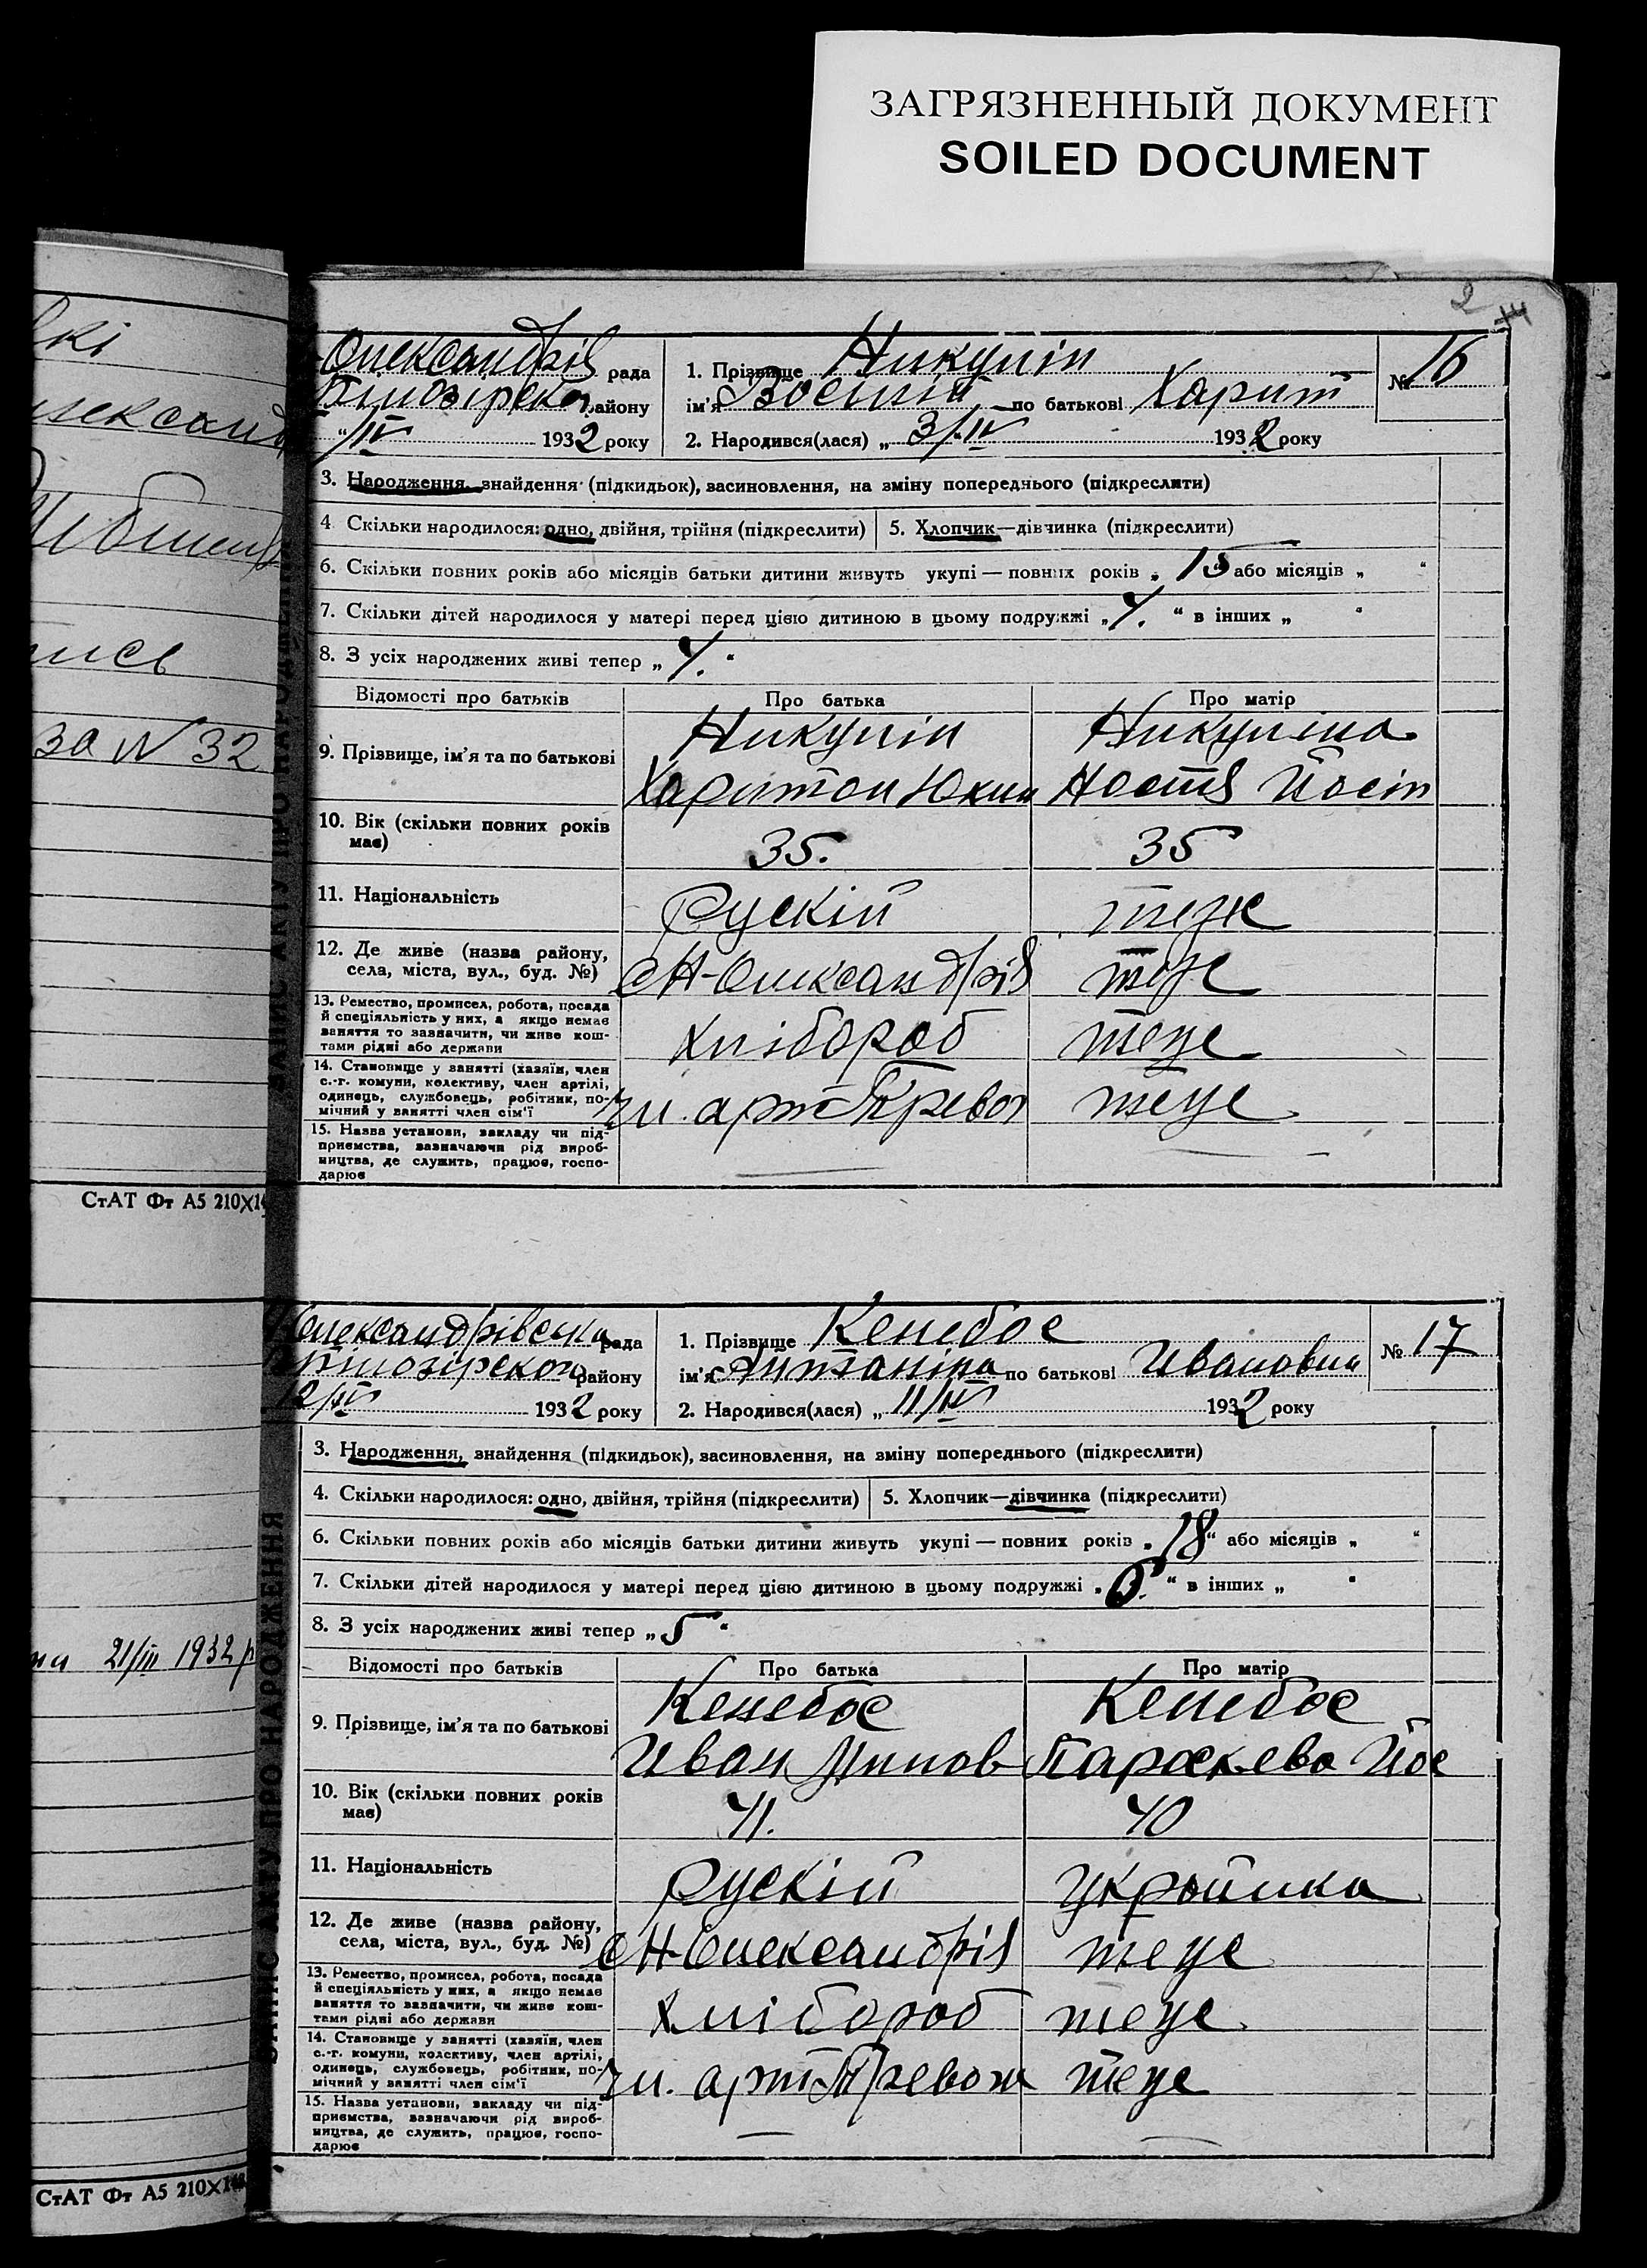 ЗАГРЯЗНЕННЫЙ ДОКУМЕНТ
SOILED DOCUMENT
2
за N 32
21/III 1932 р
СтАТ Фт А5 210Х14
СтАТ Фт А5 210Х148
ЗАПИС АКТУ ПРО НАРОДЖЕННЯ
Олександрів рада
Білозірског району
"/IV 1932 року
1. Прізвище Никулін
ім'я Восилій по батькові Харит
2. Народився(лася) „ 3/IV 1932 року
№ 16
3. Народження, знайдення (підкидьок), васиновлення, на зміну попереднього (підкреслити)
4 Скільки народилося: одно, двійня, трійня (підкреслити)
5. Хлопчик—дівчинка (підкреслити)
6. Скільки повних років або місяців батьки дитини живуть укупі — повних років „ 15 або місяців „ "
7. Скільки дітей народилося у матері перед цією дитиною в цьому подружжі „ 4. " в інших „ "
8. З усіх народжених живі тепер „ 4. "
Відомості про батьків
Про батька
Про матір
9. Прізвище, ім'я та по батькові
Никулін
Харитон Юхим
Никуліна
Ностя Йосіп
10. Вік (скільки повних років має)
35.
35
11. Національність
Рускій
теж
12. Де живе (назва району, села, міста, вул., буд. №)
с Н-Олександрів
теж
13. Ремество, промисел, робота, посада й спеціяльність у них, а якщо немає заняття то зазначити, чи живе коштами рідні або держави
Хлібороб
теж
14. Становище у занятті (хазяїн, член с.-г. комуни, колективу, член артілі, одинець, службовець, робітник, помічний у занятті член сім'ї
чл. арт
теж
15. Назва установи, закладу чи підприємства, зазначаючи рід виробництва, де служить, працює, господарює
ЗАПИС АКТУ ПРО НАРОДЖЕННЯ
Олександрівська рада
Білозірског району
12/IV 1932 року
1. Прізвище Кенебос
ім'я по батькові Ивановна
2. Народився(лася) „ 11/IV 1932 року
№ 17
3. Народження, знайдення (підкидьок), васиновлення, на зміну попереднього (підкреслити)
4. Скільки народилося: одно, двійня, трійня (підкреслити)
5. Хлопчик—дівчинка (підкреслити)
6. Скільки повних років або місяців батьки дитини живуть укупі — повних років „ 18 " або місяців „ "
7. Скільки дітей народилося у матері перед цією дитиною в цьому подружжі „ " в інших „ "
8. З усіх народжених живі тепер „ 5 "
Відомості про батьків
Про батька
Про матір
9. Прізвище, ім'я та по батькові
Кенебос
Иван
Кенебос
Параскева Йос
10. Вік (скільки повних років має)
41.
40
11. Національність
Рускій
Украйинка
12. Де живе (назва району, села, міста, вул., буд. №)
с Н-Олександрів
теж
13. Ремество, промисел, робота, посада й спеціяльність у них, а якщо немає заняття то зазначити, чи живе коштами рідні або держави
Хлібороб
теж
14. Становище у занятті (хазяїн, член с.-г. комуни, колективу, член артілі, одинець, службовець, робітник, помічний у занятті член сім'ї
чл. арт
теж
15. Назва установи, закладу чи підприємства, зазначаючи рід виробництва, де служить, працює, господарює